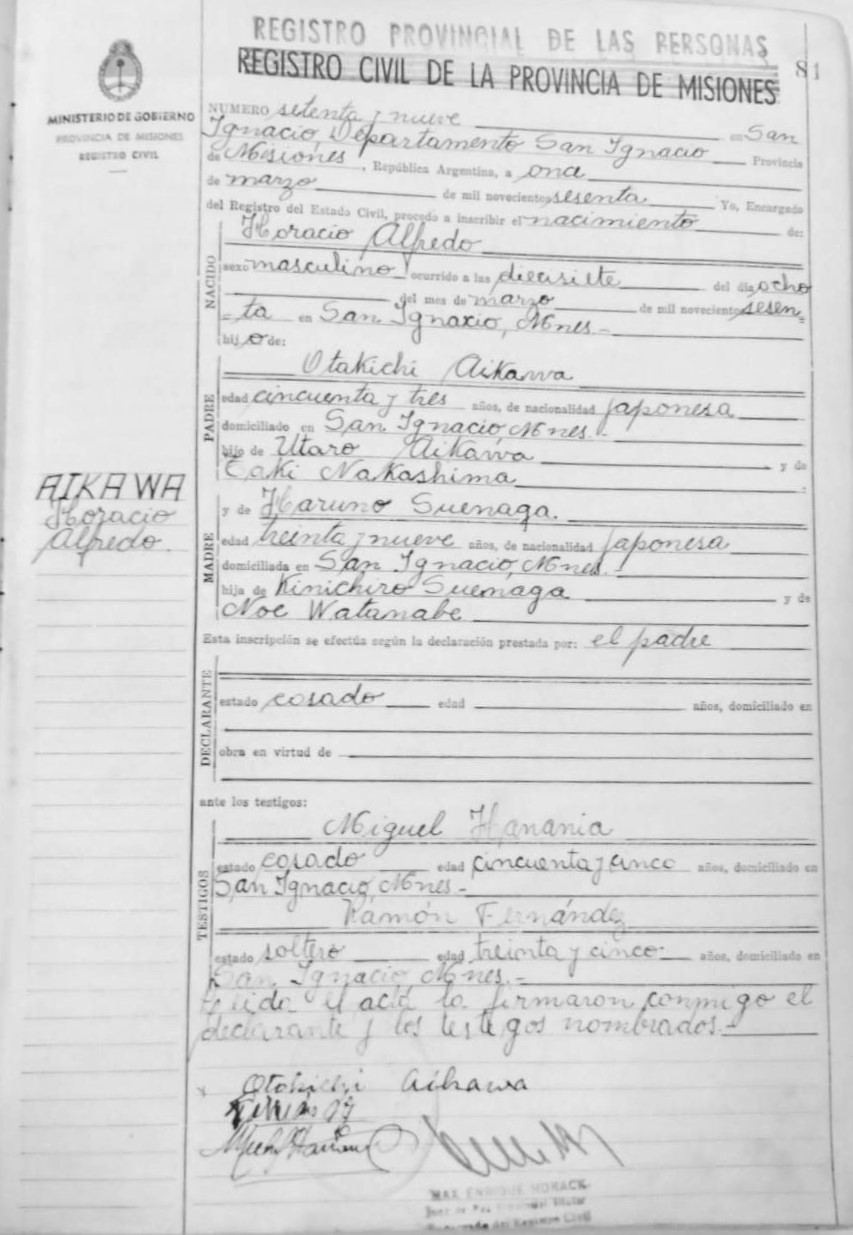 REGISTRO PROVINCIAL DE LAS PERSONAS
REGISTRO CIVIL DE LA PROVINCIA DE MISIONES
81
MINISTERIO DE GOBIERNO
PROVINCIA DE MISIONES
REGISTRO CIVIL
NUMERO setenta y nueve en San
Ignacio, Departamento San Ignacio Provincia
de Misiones, República Argentina, a once
de marzo de mil novecientos sesenta Yo, Encargado
del Registro del Estado Civil, procedo a inscribir el nacimiento de:
NACIDO
Horacio Alfredo
sexo masculino ocurrido a las diecisiete del día ocho
del mes de marzo de mil novecientos sesen
ta en San Ignacio, Mnes.-
hijo de:
PADRE
Otakichi Aikawa
edad cincuenta y tres años, de nacionalidad japonesa
domiciliado en San Ignacio, Mnes.-
hijo de Utaro Aikawa y de
Taki Nakashima
AIKAWA
Horacio
Alfredo.
MADRE
y de Haruno Suenaga.
edad treinta y nueve años, de nacionalidad japonesa
domiciliada en San Ignacio, Mnes.
hija de Kinichiro Suenaga y de
Noe Watanabe
Esta inscripción se efectúa según la declaración prestada por: el padre
DECLARANTE
estado casado edad años, domiciliado en
obra en virtud de
ante los testigos:
TESTIGOS
Miguel Hanania
estado casado edad cincuenta y cinco años, domiciliado en
San Ignacio, Mnes.-
Ramón Fernández
estado soltero edad treinta y cinco años, domiciliado en
San Ignacio Mnes.-
leida el acta la firmaron conmigo el
declarante y los testigos nombrados.-
Otokichi Aikawa
MAX ENRIQUE HORACK
Juez de Paz Titular
Encargado del Registro Civil